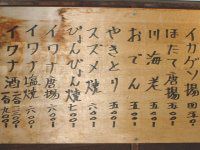 イカゲソ揚 四五〇
ほたて唐揚 五〇〇
川海老 五〇〇
おでん 五〇〇
やきとり 五〇〇
スズメ焼 六〇〇
ぴょんぴょん焼 七〇〇
イワナ唐揚 六〇〇
イワナ塩焼 六〇〇
イワナ酒